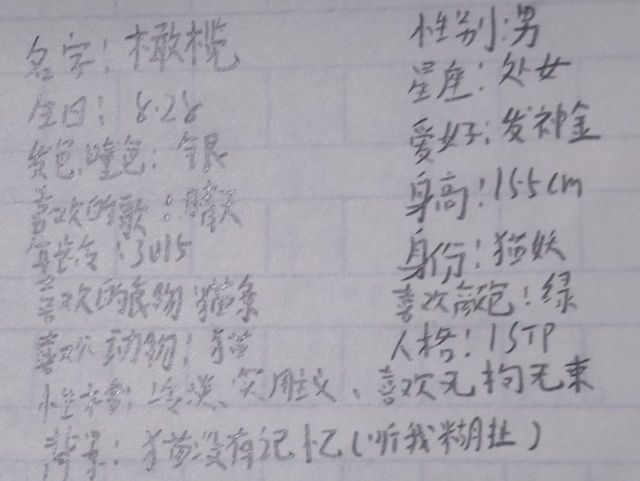 名字：橄榄
性别：男
生日：8.28
星座：处女
发色、瞳色：银
爱好：发神金
喜欢的歌：晴天
身高：155cm
年龄：3015
身份：猫妖
喜欢的食物：猫条
喜欢颜色：绿
喜欢动物：猫
人格：ISTP
性格：冷淡、实用主义、喜欢无拘无束
背景：猫没有记忆（听我糊扯）